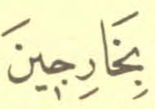 بِخَارِجِينَ